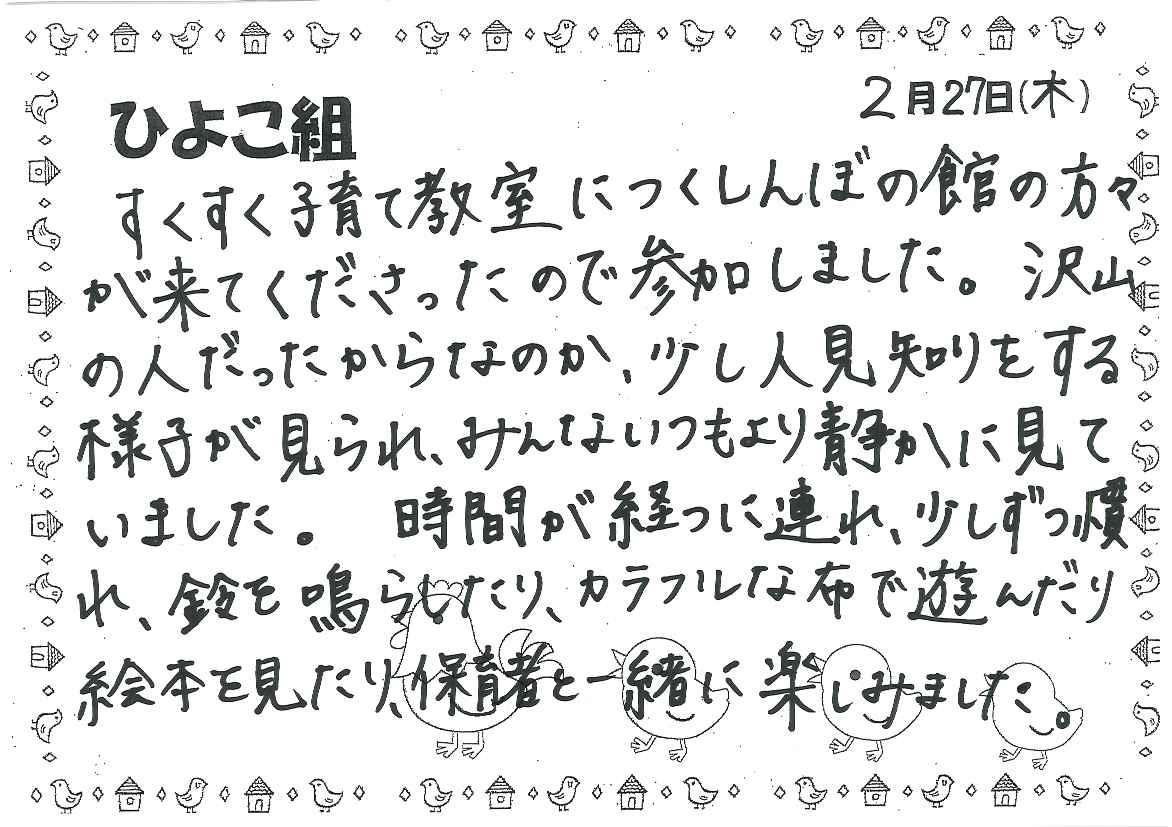 2月27日(木)
ひよこ組
すくすく子育て教室につくしんぼの館の方々
が来てくださったので参加しました。沢山
の人だったからなのか、少し人見知りをする
様子が見られ、みんないつもより静かに見て
いました。 時間が経つに連れ、少しずつ慣
れ、鈴を鳴らしたり、カラフルな布で遊んだり
絵本を見たり、保育者と一緒に楽しみました。